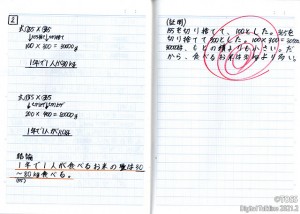 2
米185×365
100×300=30000g
1年で1人が30kg
米185×365
200×400=80000g
1年で1人が80kg
結論
1年で1人が食べるお米の量は30
~80kg食べる。
(証明)
185を切り捨てて、100とした。365を
切り捨てて300とした。100×300=30000
もとの積よりも小さい。だ
から、食べるお米は30kgより多い。
©TOSS
Digital Talkline 2021.2